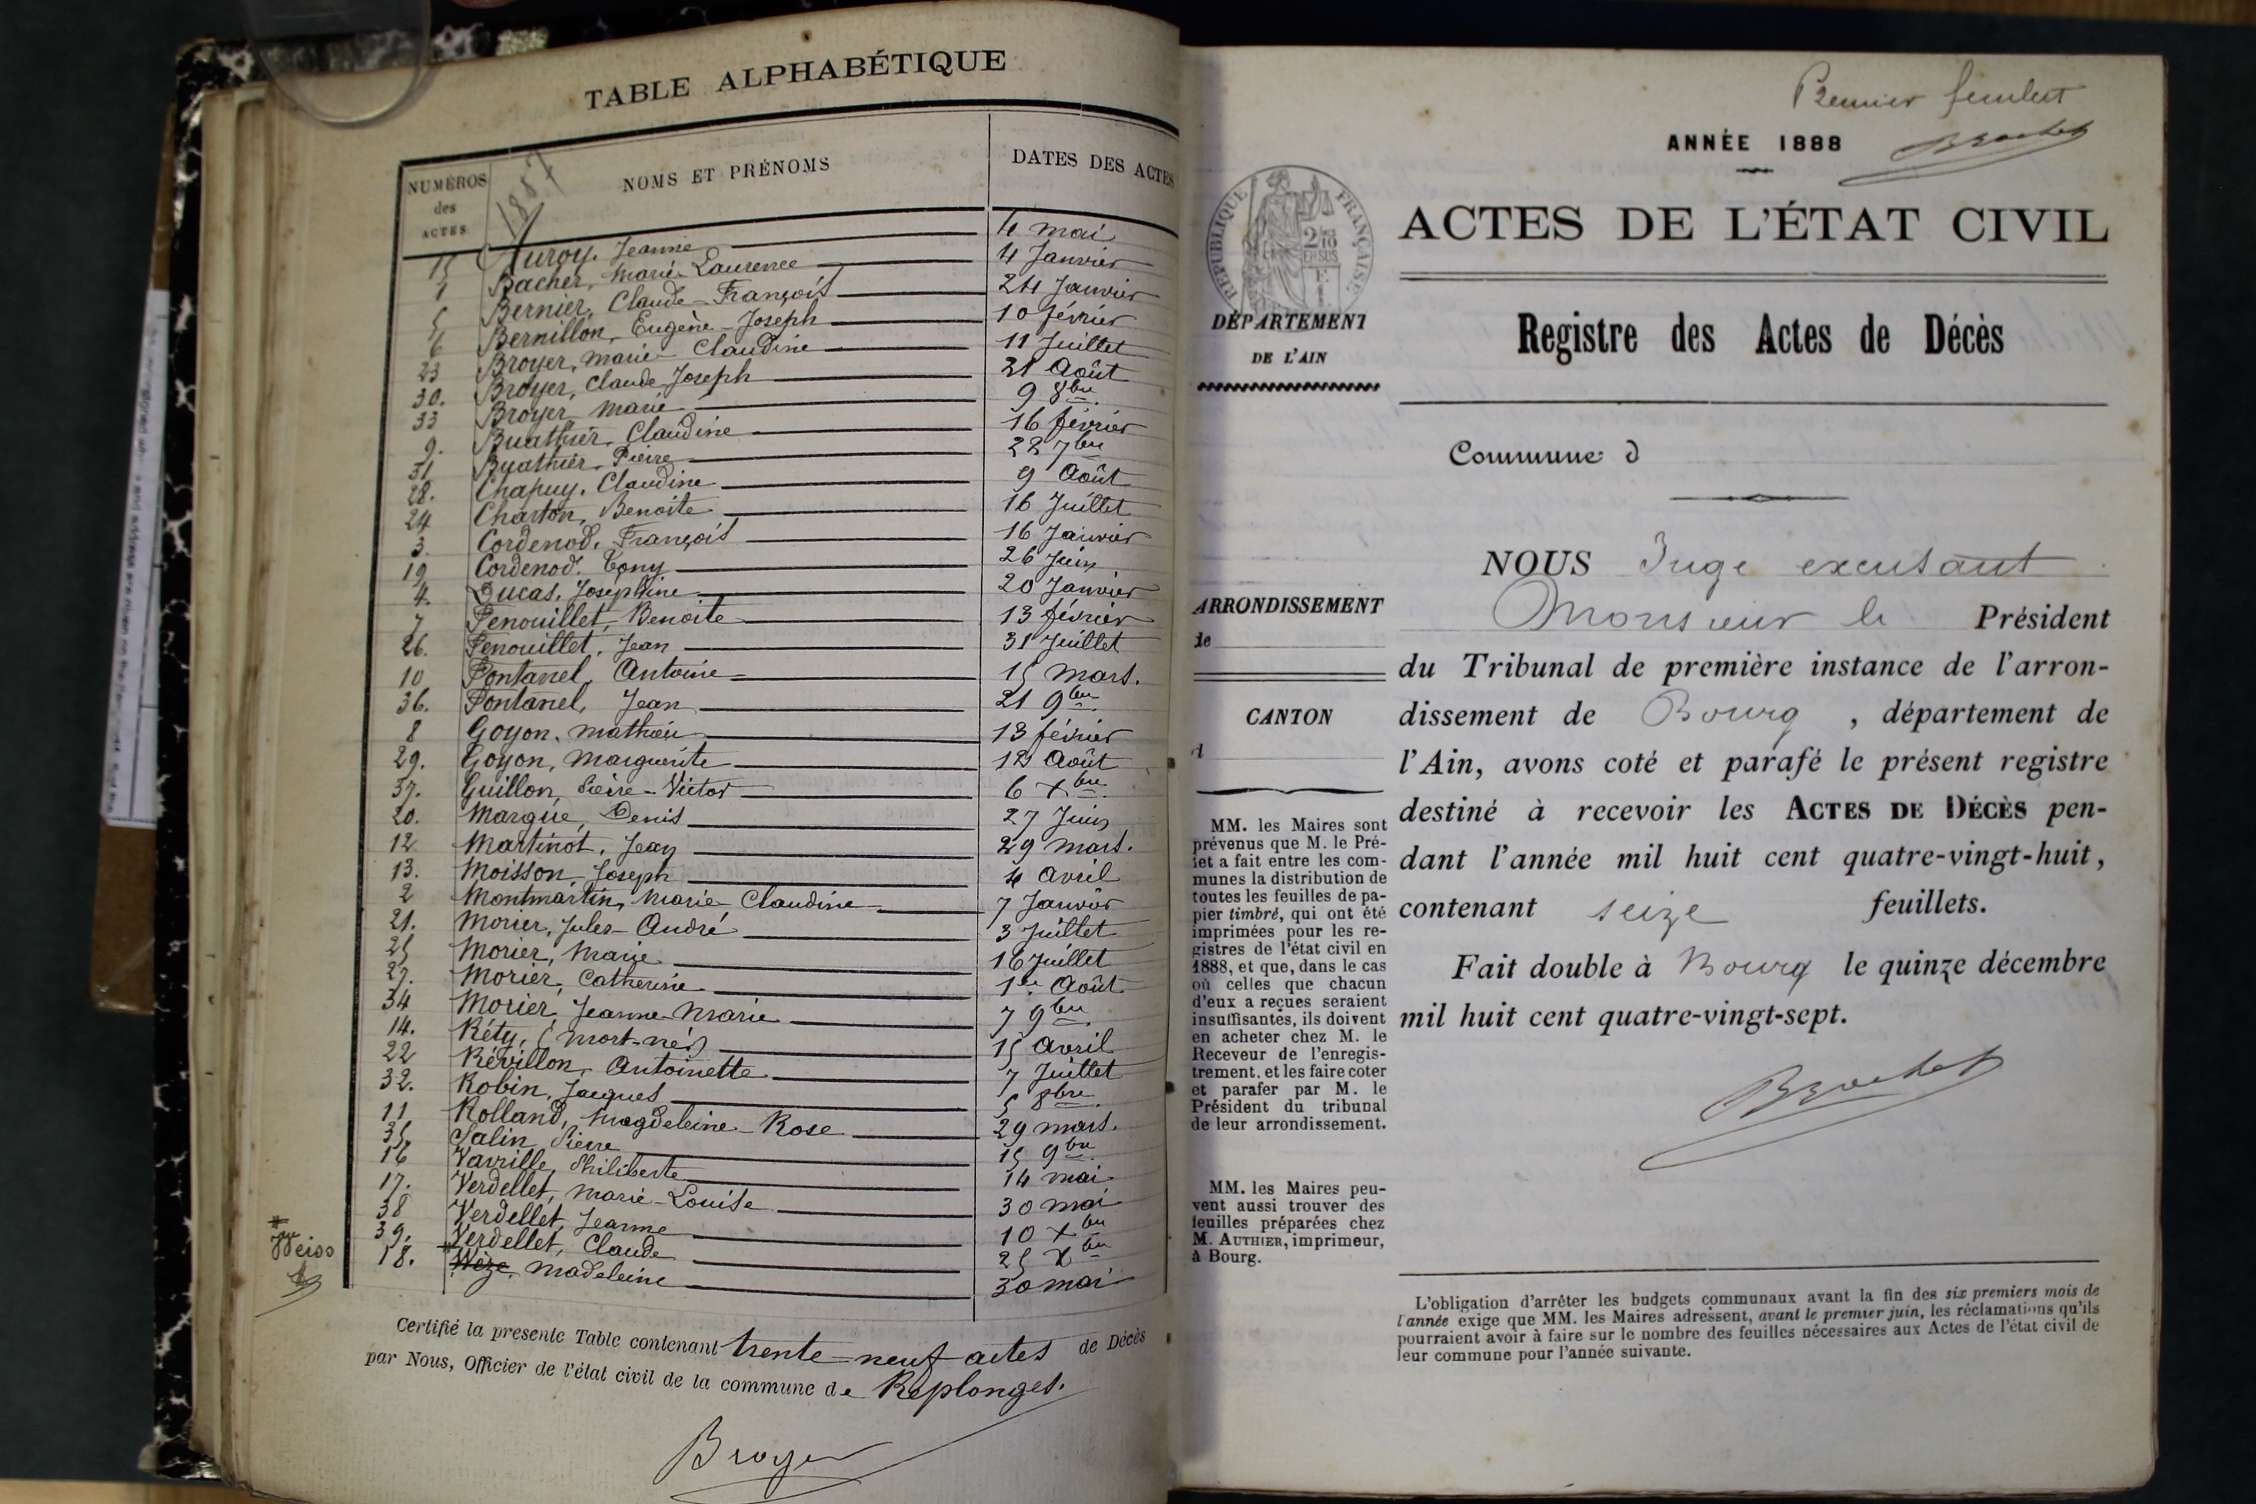 TABLE ALPHABÉTIQUE
NUMÉROS des ACTES
1887
NOMS ET PRÉNOMS
DATES DES ACTES
15 Auroy, Jeanne 4 mai
1 Bacher, Marie Laurence 4 Janvier
5 Bernier, Claude-François 24 Janvier
6 Bernillon, Eugène-Joseph 10 février
23 Broyer, Marie Claudine 11 Juillet
30. Broyer, Claude Joseph 21 Août
33 Broyer, Marie 9 8bre
9. Buathier, Claudine 16 février
31 Buathier, Pierre 22 7bre
28. Chapuy, Claudine 9 Août
24 Charton, Benoite 16 Juillet
3. Cordenod, François 16 Janvier
19 Cordenod, Tony 26 Juin
4. Ducas, Joséphine 20 Janvier
7 Fenouillet, Benoite 13 février
26. Fenouillet, Jean 31 Juillet
10 Fontanel, Antoine 15 mars.
36. Fontanel, Jean 21 9bre
8 Goyon, Mathieu 13 février
29. Goyon, Marguerite 12 Août
37. Guillon, Pierre-Victor 6 Xbre
20. Margue, Denis 27 Juin
12 Martinot, Jean 29 mars.
13. Moisson, Joseph 4 avril
2 Montmartin, Marie Claudine 7 Janvier
21. Morier, Jules André 3 Juillet
25 Morier, Marie 16 Juillet
27. Morier, Catherine 1er Août
34 Morier, Jeanne-Marie 7 9bre
14. Réty, (mort-né) 15 avril
22 Révillon, Antoinette 7 Juillet
32. Robin, Jacques 5 8bre
11 Rolland, Magdeleine-Rose 29 mars.
35. Salin, Pierre 15 9bre
16 Vavrille, Philiberte 14 mai
17. Verdellet, Marie-Louise 30 mai
38 Verdellet, Jeanne 10 Xbre
39. Verdellet, Claude 25 Xbre
18. Wèze, Madeleine 30 mai
Weiss
Certifié la présente Table contenant trente-neuf actes de Décès
par Nous, Officier de l'état civil de la commune de Replonges.
Broyer
Premier feuillet
ANNÉE 1888
Brochet
RÉPUBLIQUE FRANÇAISE
ACTES DE L'ÉTAT CIVIL
Registre des Actes de Décès
DÉPARTEMENT
DE L'AIN
Commune d
ARRONDISSEMENT
de
CANTON
d
MM. les Maires sont
prévenus que M. le Pré-
fet a fait entre les com-
munes la distribution de
toutes les feuilles de pa-
pier timbré, qui ont été
imprimées pour les re-
gistres de l'état civil en
1888, et que, dans le cas
où celles que chacun
d'eux a reçues seraient
insuffisantes, ils doivent
en acheter chez M. le
Receveur de l'enregis-
trement, et les faire coter
et parafer par M. le
Président du tribunal
de leur arrondissement.
MM. les Maires peu-
vent aussi trouver des
feuilles préparées chez
M. AUTHIER, imprimeur,
à Bourg.
NOUS Juge excusant
Monsieur le Président
du Tribunal de première instance de l'arron-
dissement de Bourg, département de
l'Ain, avons coté et parafé le présent registre
destiné à recevoir les ACTES DE DÉCÈS pen-
dant l'année mil huit cent quatre-vingt-huit,
contenant seize feuillets.
Fait double à Bourg le quinze décembre
mil huit cent quatre-vingt-sept.
Brochet
L'obligation d'arrêter les budgets communaux avant la fin des six premiers mois de
l'année exige que MM. les Maires adressent, avant le premier juin, les réclamations qu'ils
pourraient avoir à faire sur le nombre des feuilles nécessaires aux Actes de l'état civil de
leur commune pour l'année suivante.